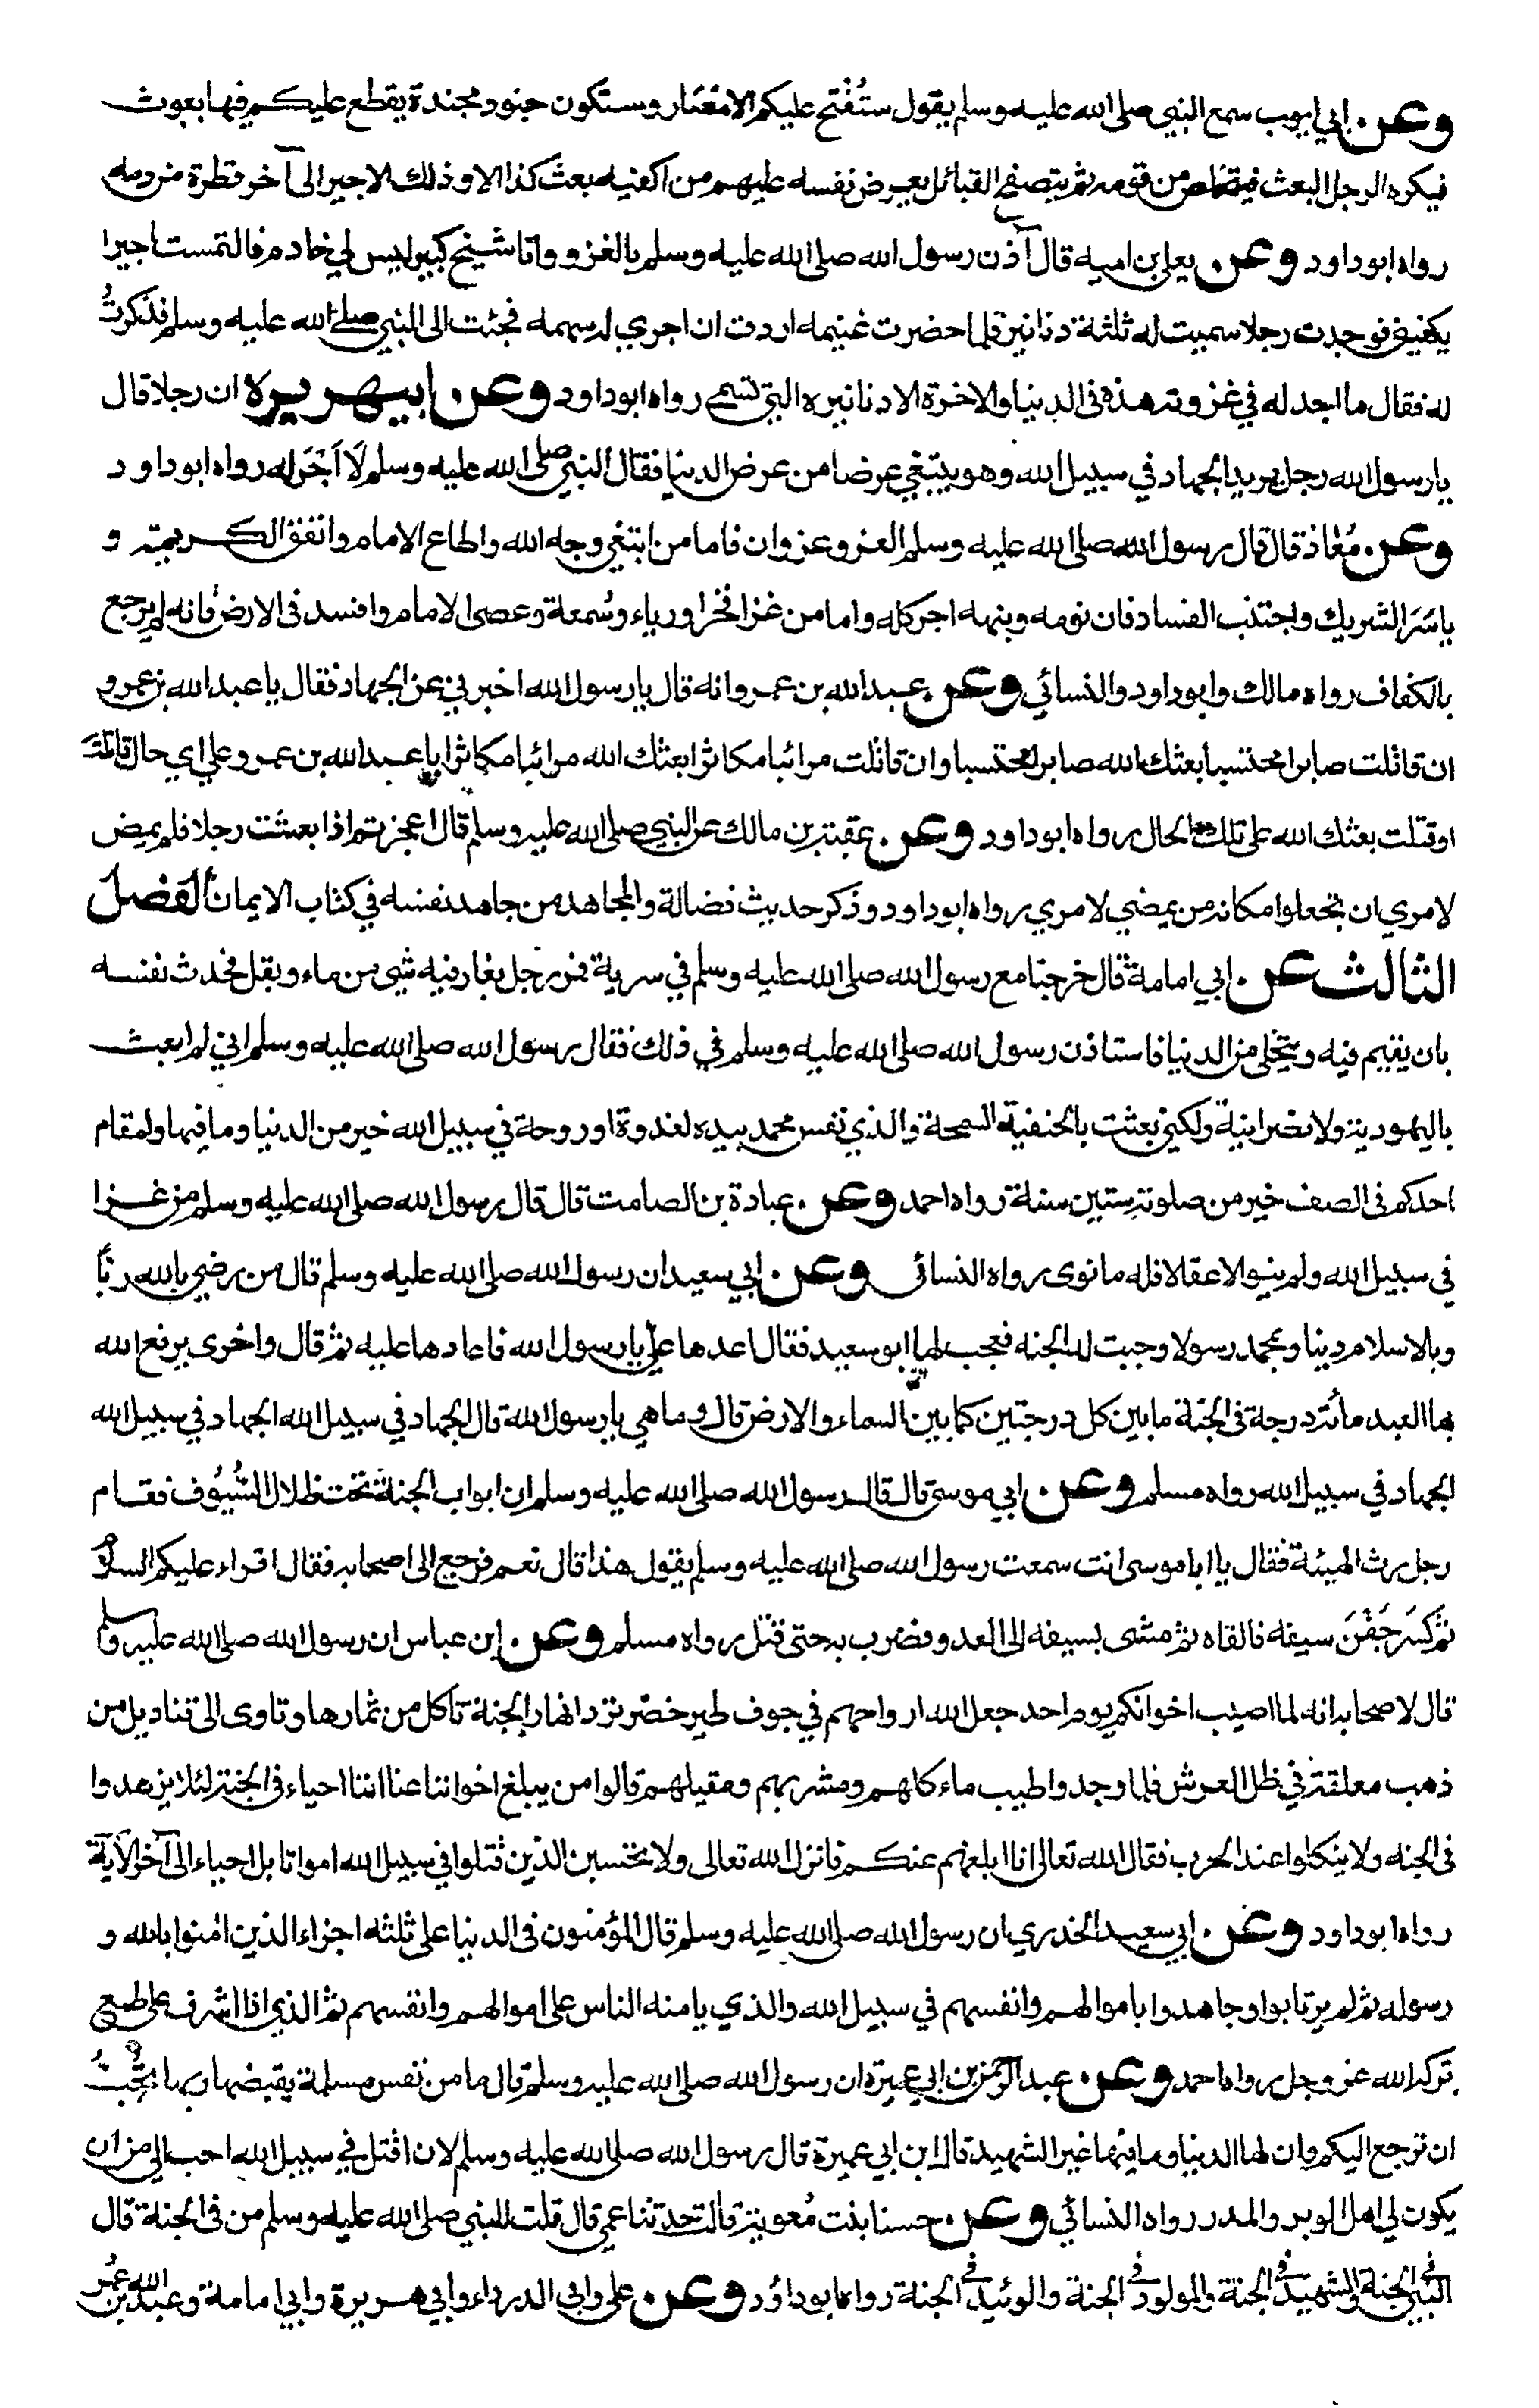 وعن ابي ايوب سمع النبي صلى الله عليه وسلم يقول ستُفْتح عليكم الامْصَار وستكون جنود مجندة يقطع عليكم فيها بعوث
فيكره الرجل البعث فيتخلص من قومه ثم يتصفح القبائل يعرض نفسه عليهم من اكفيه بعث كذا الا وذلك الاجير الى آخر قطرة من دمه
رواه ابو داود وعن يعلى بن امية قال آذن رسول الله صلى الله عليه وسلم بالغزو وانا شيخ كبير ليس لي خادم فالتمست اجيرا
يكفيني فوجدت رجلا سميت له ثلثة دنانير فلما حضرت غنيمه اردت ان اجري له سهمه فجئت الى النبي صلى الله عليه وسلم فذكرتُ
له فقال ما اجد له في غزوته هذه في الدنيا والاخرة الا دنانيره التي تسمي رواه ابو داود وعن ابي هريرة ان رجلا قال
يا رسول الله رجل يريد الجهاد في سبيل الله وهو يبتغي عرضا من عرض الدنيا فقال النبي صلى الله عليه وسلم لَا اَجْرَ له رواه ابو داود
وعن مُعٰاذ قال قال رسول الله صلى الله عليه وسلم الغزو غزوان فاما من ابتغى وجه الله واطاع الامام وانفق الكريمة و
ياسَرَ الشريك واجتنب الفساد فان نومه ونبهه اجر كله واما من غزا فخرا ورياء وسُمعة وعصى الامام وافسد في الارض فانه لم يرجع
بالكفاف رواه مالك وابو داود والنسائي وعن عبد الله بن عمرو انه قال يا رسول الله اخبرني عن الجهاد فقال يا عبد الله بن عمرو
ان قاتلت صابرا محتسبا بعثك الله صابرا محتسبا وان قاتلت مرائيا مكاثرا بعثك الله مرائيا مكاثرا يا عبد الله بن عمرو على اي حال قاتلتَ
او قتلت بعثك الله على تلك الحال رواه ابو داود وعن عقبة بن مالك عن النبي صلى الله عليه وسلم قال اعجزتم اذا بعثت رجلا فلم يمض
لامري ان تجعلوا مكانه من يمضي لامري رواه ابو داود وذكر حديث فضالة والمجاهد من جاهد نفسه في كتاب الايمان الفصل
الثالث عن ابي امامة قال خرجنا مع رسول الله صلى الله عليه وسلم في سرية فمر رجل بغار فيه شيء من ماء وبقل فحدث نفسه
بان يقيم فيه ويتخلى من الدنيا فاستاذن رسول الله صلى الله عليه وسلم في ذلك فقال رسول الله صلى الله عليه وسلم اني لم ابعث
باليهودية ولا نصرانية ولكني بعثت بالحنفية السمحة والذي نفس محمد بيده لغدوة او روحة في سبيل الله خير من الدنيا وما فيها ولمقام
احدكم في الصف خير من صلوته ستين سنة رواه احمد وعن عبادة بن الصامت قال قال رسول الله صلى الله عليه وسلم من غزا
في سبيل الله ولم ينو الا عقالا فله ما نوى رواه النسائي وعن ابي سعيد ان رسول الله صلى الله عليه وسلم قال من رضي بالله ربًّا
وبالاسلام دينا وبمحمد رسولا وجبت له الجنه فعجب لها ابو سعيد فقال اعدها عليّ يا رسول الله فاعادها عليه ثم قال واخرى يرفع الله
بها العبد مائة درجة في الجنة ما بين كل درجتين كما بين السماء والارض قال وما هي يا رسول الله قال الجهاد في سبيل الله الجهاد في سبيل الله
الجهاد في سبيل الله رواه مسلم وعن ابي موسى قال قال رسول الله صلى الله عليه وسلم ان ابواب الجنة تحت ظلال السُّيُوف فقام
رجل رث الهيئة فقال يا ابا موسى انت سمعت رسول الله صلى الله عليه وسلم يقول هذا قال نعم فرجع الى اصحابه فقال اقراء عليكم السلام
ثم كَسَرَ جَفْنَ سيفه فالقاه ثم مشى بسيفه الى العدو فضرب به حتى قتل رواه مسلم وعن ابن عباس ان رسول الله صلى الله عليه وسلم
قال لاصحابه انه لما اصيب اخوانكم يوم احد جعل الله ارواحهم في جوف طير خضر ترد انهار الجنة تاكل من ثمارها وتاوى الى قناديل من
ذهب معلقة في ظل العرش فلما وجدوا طيب ماءكلهم ومشربهم ومقيلهم قالوا من يبلغ اخواننا عنا اننا احياء في الجنة لئلا يزهدوا
في الجنه ولا ينكلوا عند الحرب فقال الله تعالى انا ابلغهم عنكم فانزل الله تعالى ولا تحسبن الذين قتلوا في سبيل الله امواتا بل احياء الى آخر الآية
رواه ابو داود وعن ابي سعيد الخدري ان رسول الله صلى الله عليه وسلم قال المؤمنون في الدنيا على ثلثه اجزاء الذين امنوا بالله و
رسوله ثم لم يرتابوا وجاهدوا باموالهم وانفسهم في سبيل الله والذي يامنه الناس على اموالهم وانفسهم ثم الذي اذا اشرف على طمع
تركه الله عز وجل رواه احمد وعن عبد الرحمن بن ابي عميرة ان رسول الله صلى الله عليه وسلم قال ما من نفس مسلمة يقبضها ربها تُحِبُّ
ان ترجع اليكم وان لها الدنيا وما فيها غير الشهيد قال ابن ابي عميرة قال رسول الله صلى الله عليه وسلم لان اقتل في سبيل الله احب الي من ان
يكون لي اهل الوبر والمدر رواه النسائي وعن حسنا بنت مُعوية قالت حدثنا عمي قال قلت للنبي صلى الله عليه وسلم من في الجنة قال
النبي في الجنة والشهيد في الجنة والمولود في الجنة والوئيد في الجنة رواه ابو داؤد وعن علي وابي الدرداء وابي هريرة وابي امامة وعبد الله بن عمر